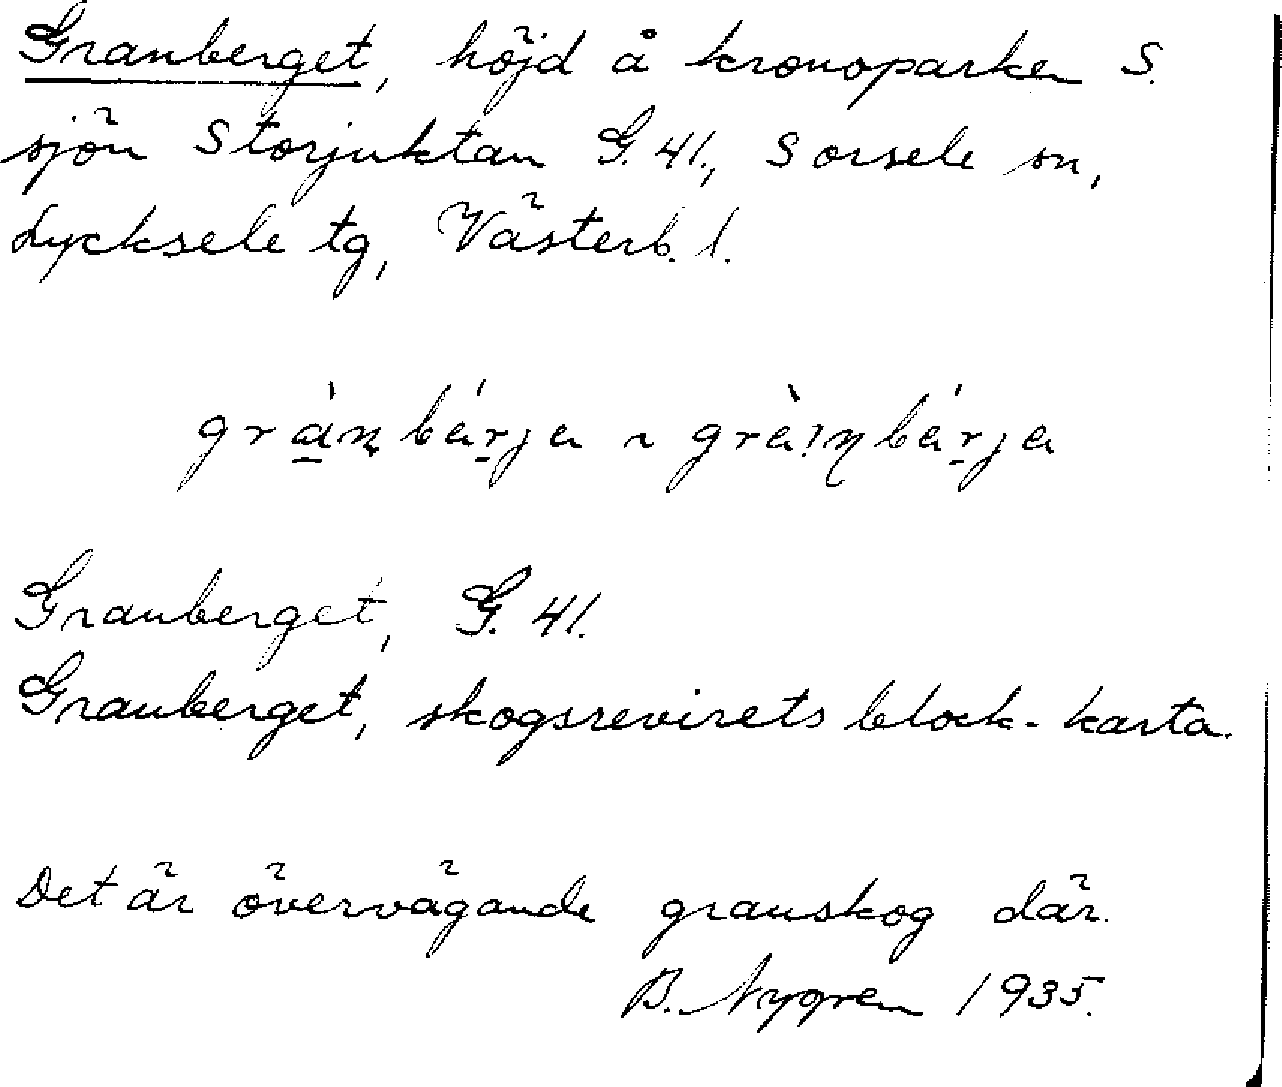 Granberget, höjd å kronoparken S.
sjön Storjuktan G. 41., Sorsele sn,
Lycksele tg, Västerb. l.
Granberget, G. 41.
Granberget, skogsrevirets block-karta.
Det är övervägande granskog där.
B. Nygren 1935.